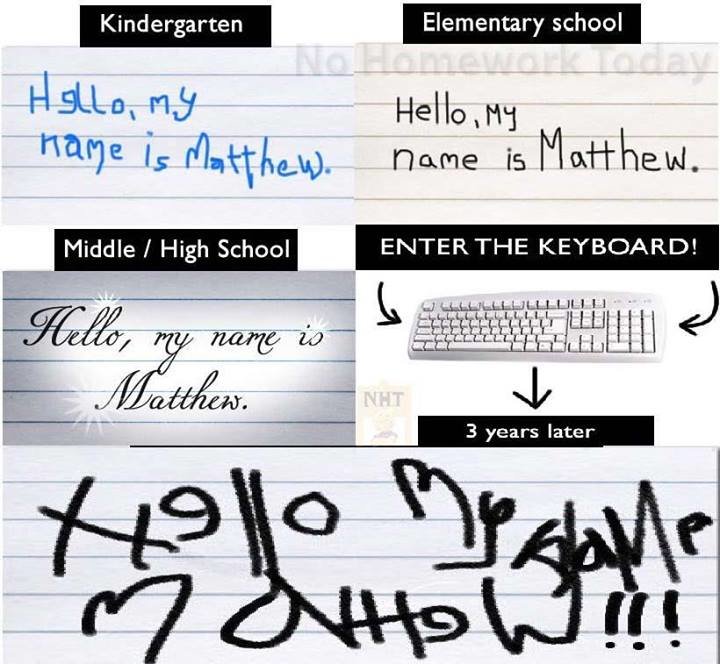 Kindergarten
Elementary school
No Homework Today
Hello, my
name is Matthew.
Hello, My
name is Matthew.
Middle / High School
ENTER THE KEYBOARD!
Hello, my name is
Matthew.
NHT
3 years later
Hello My Name
Mathew!!!